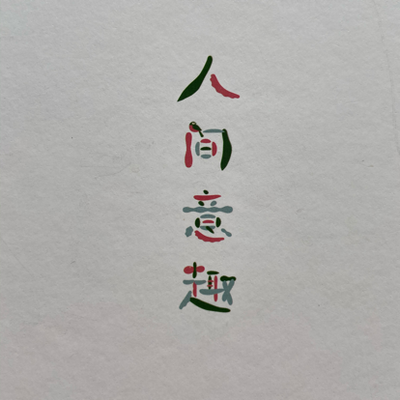 人间意趣